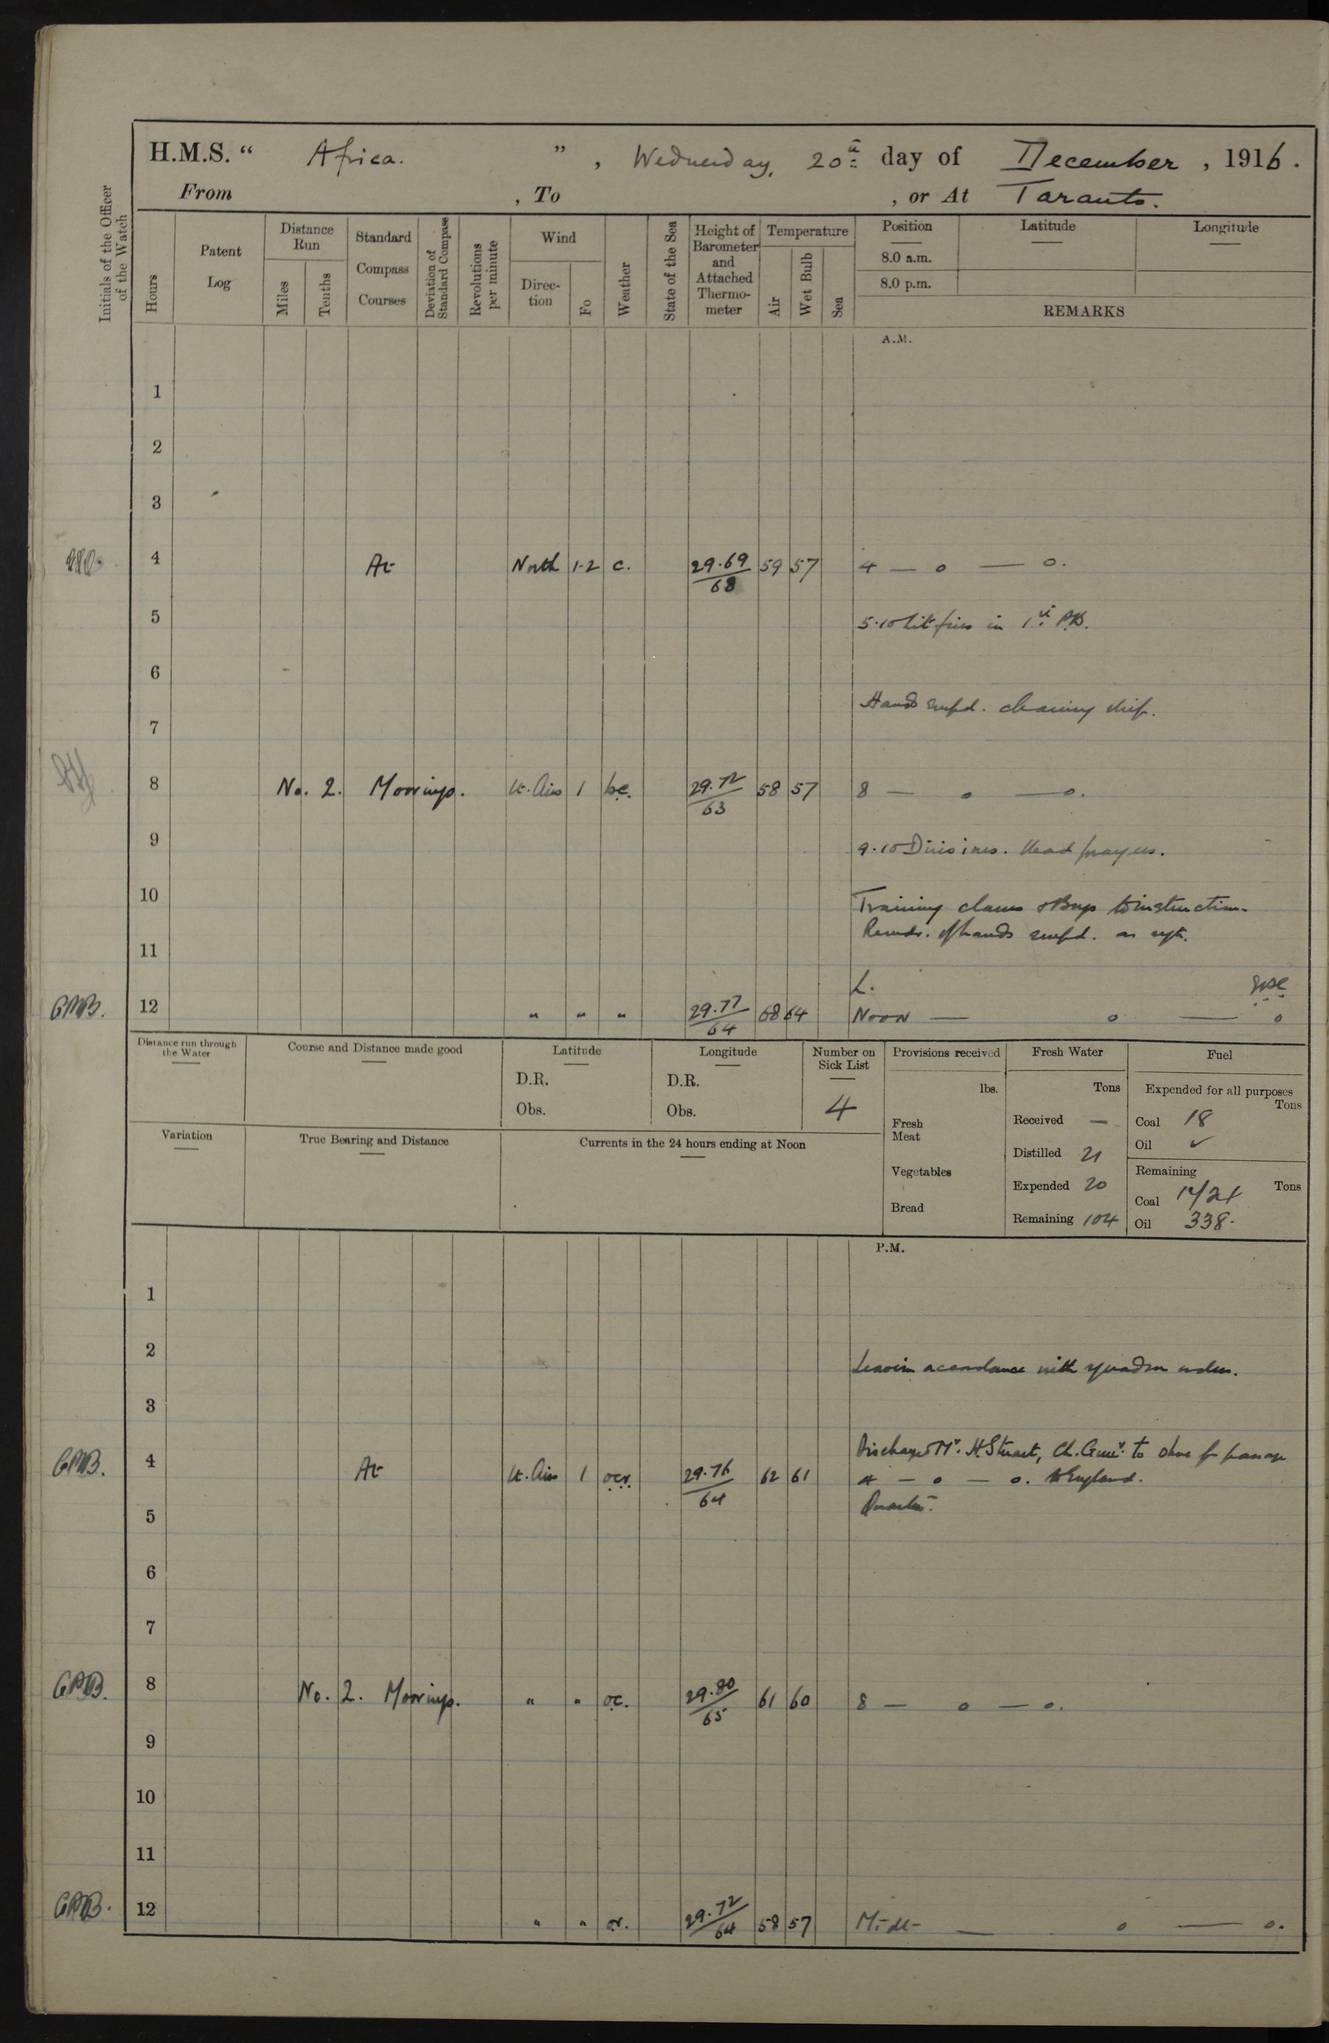 H.M.S. " Africa. " , Wednesday, 20th day of December , 1916 .
From , To , or At Taranto.
Initials of the Officer of the Watch
Hours
Patent Log
Distance Run
Miles
Tenths
Standard Compass Courses
Deviation of Standard Compass
Revolutions per minute
Wind
Direc-tion
Fo
Weather
State of the Sea
Height of Barometer and Attached Thermo-meter
Temperature
Air
Wet Bulb
Sea
Position
Latitude
Longitude
8.0 a.m.
8.0 p.m.
REMARKS
A.M.
1
2
3
4 At North 1-2 c. 29.69/68 59 57 4 — o — o.
5 5.10 Lit fires in 1st P.B.
6
Hands empd. cleaning ship.
7
8 No. 2. Moorings. Lt. Airs 1 bc. 29.72/63 58 57 8 — o — o.
9 9.10 Divisions. Read prayers.
10 Training classes & Boys to instruction.
11 Remdr. of hands empd. as reqte.
L.
GMB. 12 " " " 29.77/64 68 64 Noon — o — o
Distance run through the Water
Course and Distance made good
Latitude
D.R.
Obs.
Longitude
D.R.
Obs.
Number on Sick List
4
Provisions received
lbs.
Fresh Meat
Vegetables
Bread
Fresh Water
Tons
Received —
Distilled 21
Expended 20
Remaining 104
Fuel
Expended for all purposes
Tons
Coal 18
Oil ✓
Remaining
Tons
Coal
Oil 338.
Variation
True Bearing and Distance
Currents in the 24 hours ending at Noon
P.M.
1
2 Leave in accordance with squadron orders.
3
Discharged Mr. H. Stuart, Ch. Gunr. to shore for passage
GMB. 4 At Lt. Airs 1 ocr. 29.76/64 62 61 4 — o — o. to England.
5 Quarters.
6
7
GMB. 8 No. 2. Moorings. " " oc. 29.80/65 61 60 8 — o — o.
9
10
11
GMB. 12 " " or. 29.72/64 58 57 Midt — o — o.